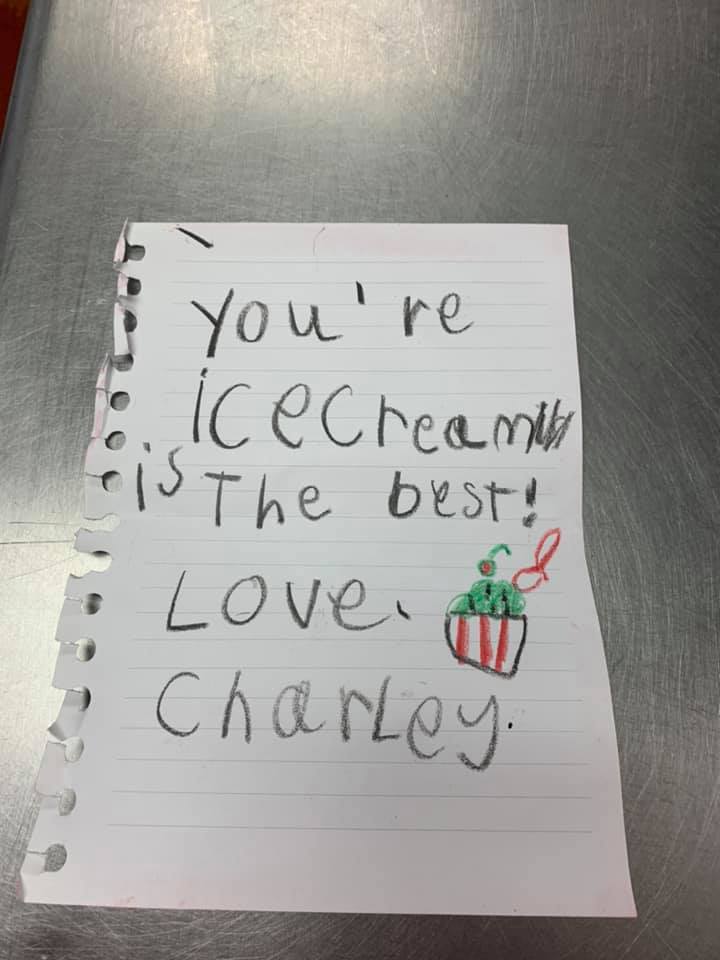 you're
icecream
is The best!
Love.
Charley.